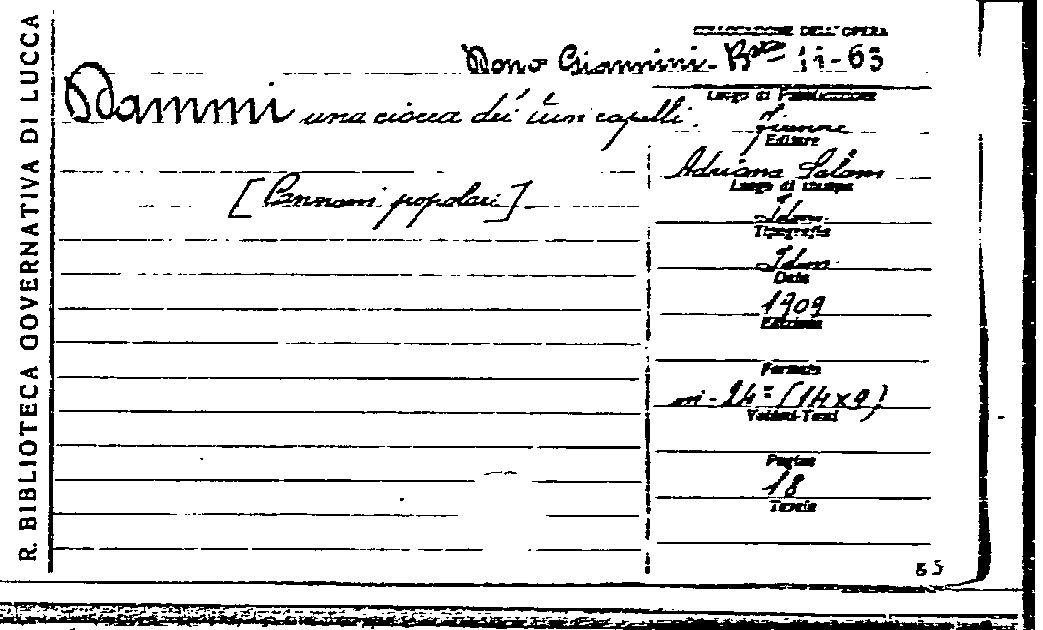 R. BIBLIOTECA GOVERNATIVA DI LUCCA
COLLOCAZIONE DELL'OPERA
Dono Giannini - Bta 11-63
Dammi una ciocca dei tuoi capelli.
[Canzoni popolari]
Luogo di Pubblicazione
Firenze
Editore
Adriano Salani
Luogo di stampa
Idem
Tipografia
Idem
Data
1909
Edizione
Formato
in-24° (14x9)
Volumi-Tomi
Pagine
18
Tavole
85